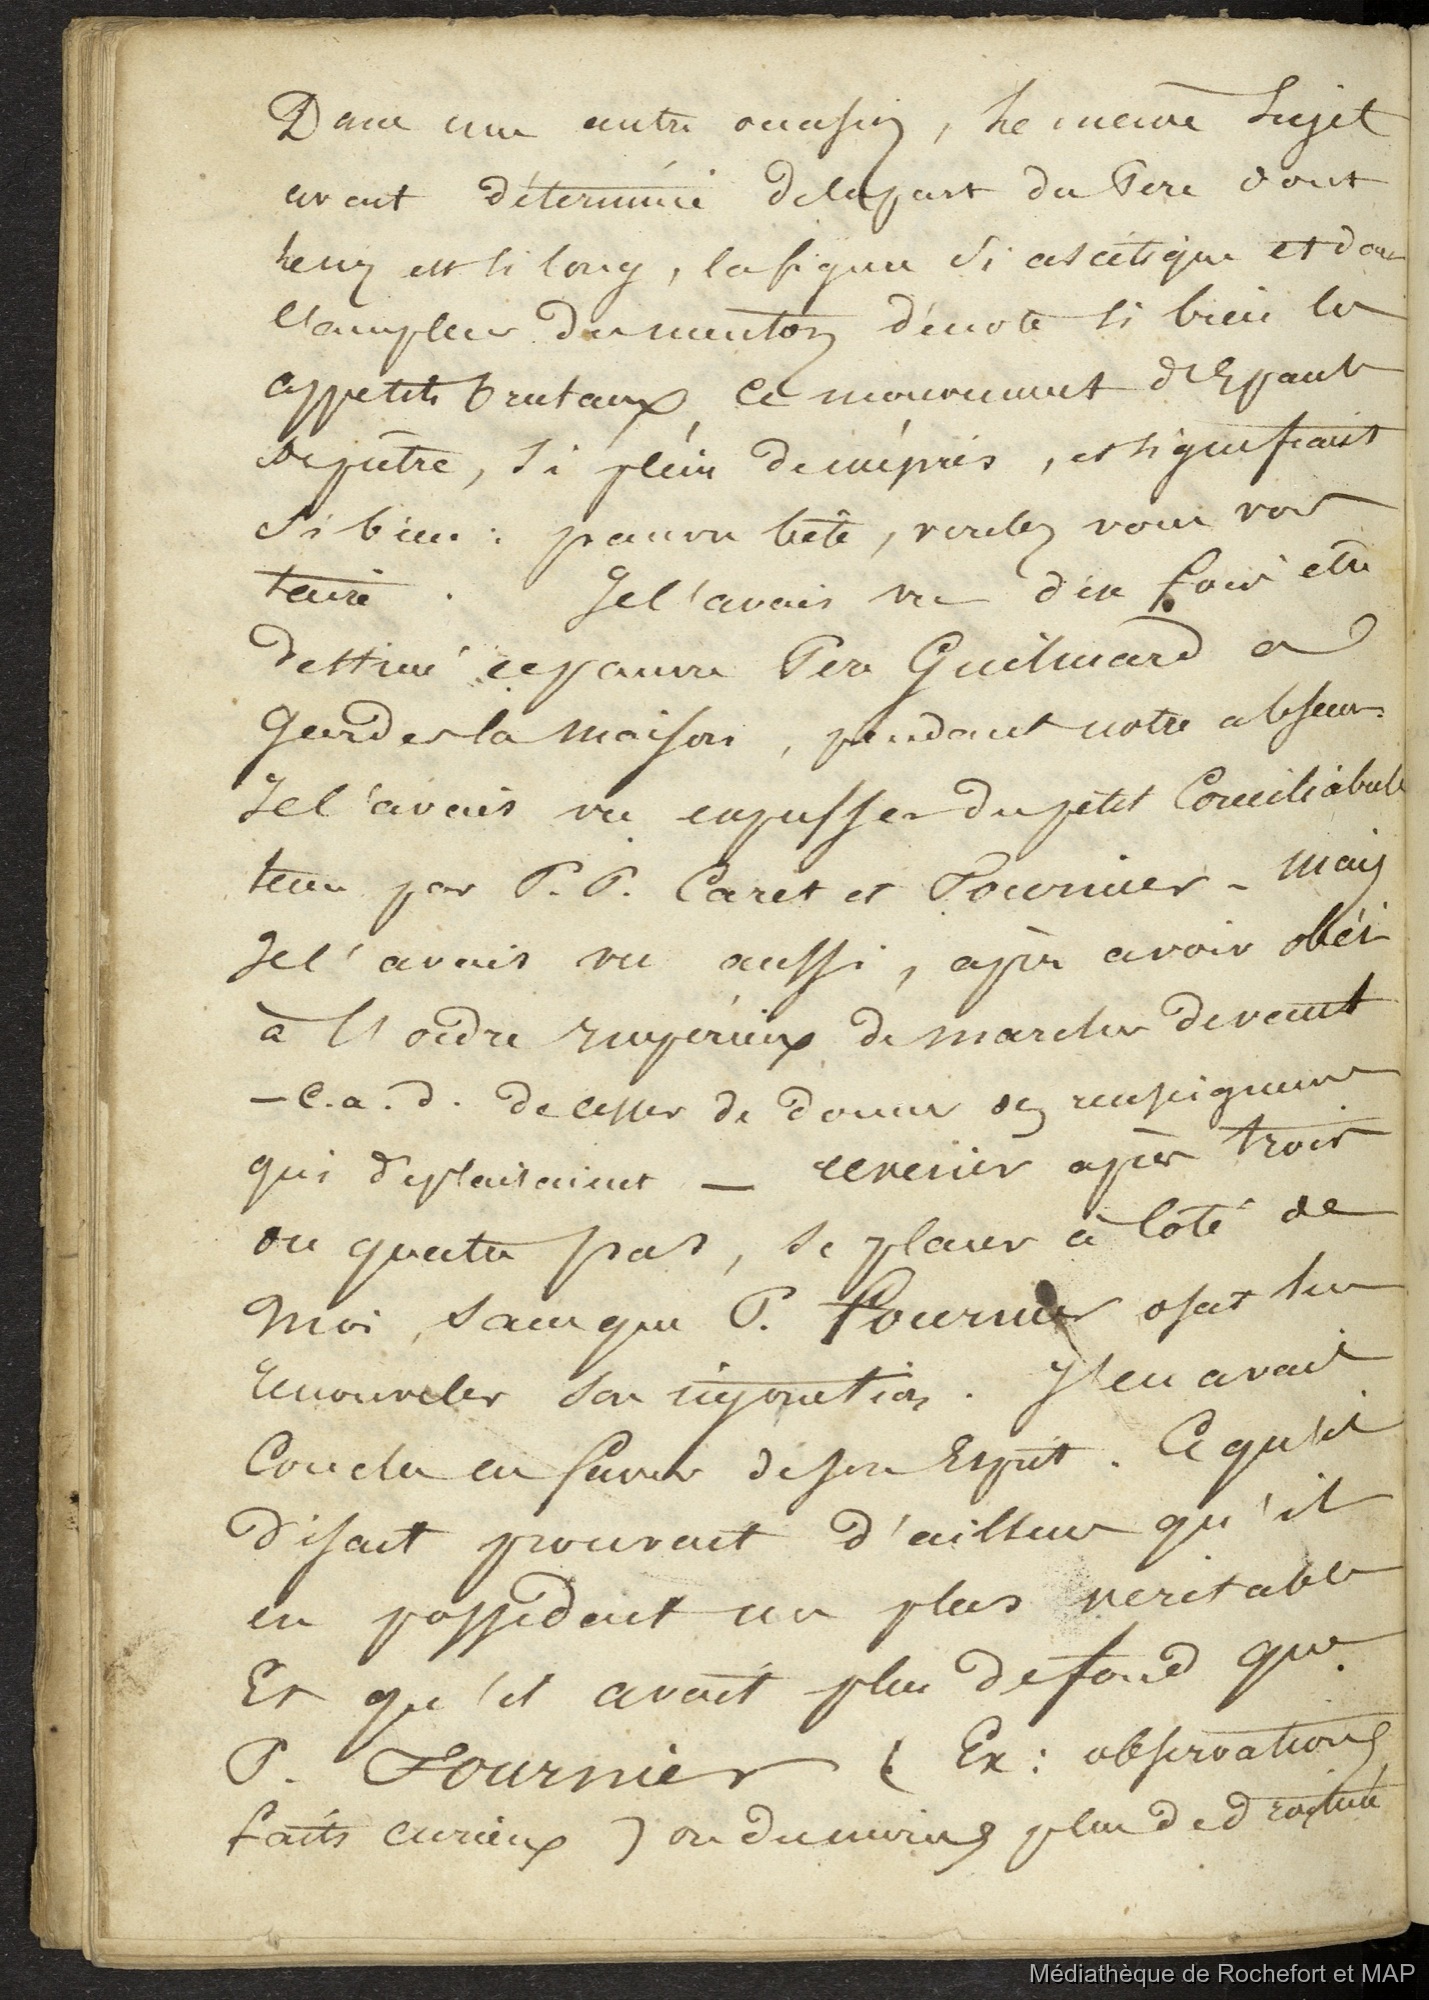 Dans une autre occasion, le même sujet
avait déterminé de la part du Père dont
le nez est si long, la figure si ascétique et dont
l'ampleur du menton dénote si bien les
appetits brutaux, ce mouvement d'Epaule
de pitre, si plein de mépris, et signifiant
si bien : pauvre bête, voulez vous vous
taire . Je l'avais vu dix fois être
destiné ce pauvre Père Guilmard a
garder la maison, pendant notre absence.
Je l'avais vu expulser du petit Conciliabule
tenu par P. P. Caret et Fournier - Mais
Je l'avais vu aussi, après avoir obéi
à l'ordre impérieux de marcher devant
- c. a. d. de cesser de donner des renseignemens
qui déplaisaient — revenir après trois
ou quatre pas, se placer à côté de
moi, sans que P. Fournier osat lui
renouveler son injonction. J'en avais
Conclu en faveur de son Esprit. Ce qu'il
disait prouvait d'ailleurs qu'il
en possédait un plus veritable
Et qu'il avait plus de fond que
P. Fournier ( Ex : observations
faits curieux ) ou du moins plus de